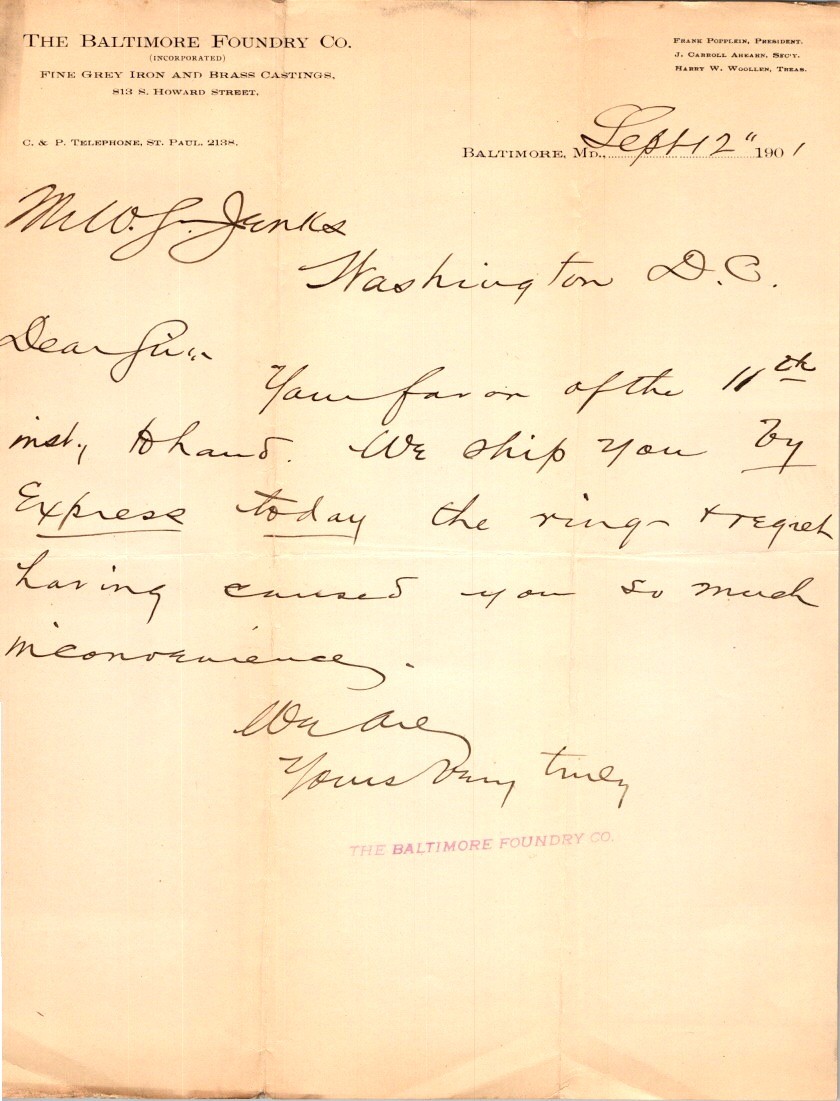 THE BALTIMORE FOUNDRY CO.
(INCORPORATED)
FINE GREY IRON AND BRASS CASTINGS,
813 S. HOWARD STREET.
FRANK POPPLEIN, PRESIDENT.
J. CARROLL AHEARN, SEC'Y.
HARRY W. WOOLLEN, TREAS.
C. & P. TELEPHONE, ST. PAUL. 2138.
BALTIMORE, MD., Sept 12" 1901
Mr W. S. Jenks
Washington D.C.
Dear Sir:
Your favor of the 11th
inst, to hand. We ship you by
Express today the ring & regret
having caused you so much
inconvenience.
We are
Yours Very truly
THE BALTIMORE FOUNDRY CO.